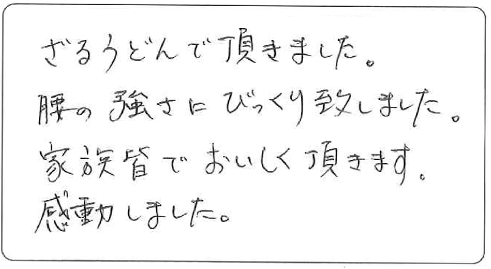 ざるうどんで頂きました。
腰の強さにびっくり致しました。
家族皆でおいしく頂きます。
感動しました。